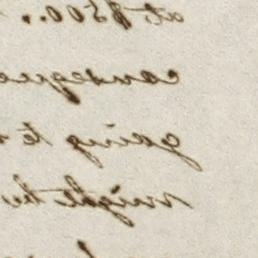 at $500.
conseque
going to
might be